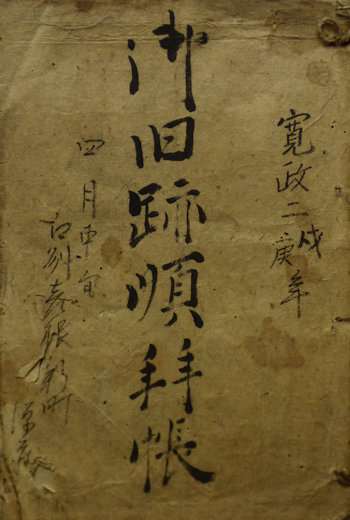 寛政二庚戌年
御旧跡順拝帳
四月中旬